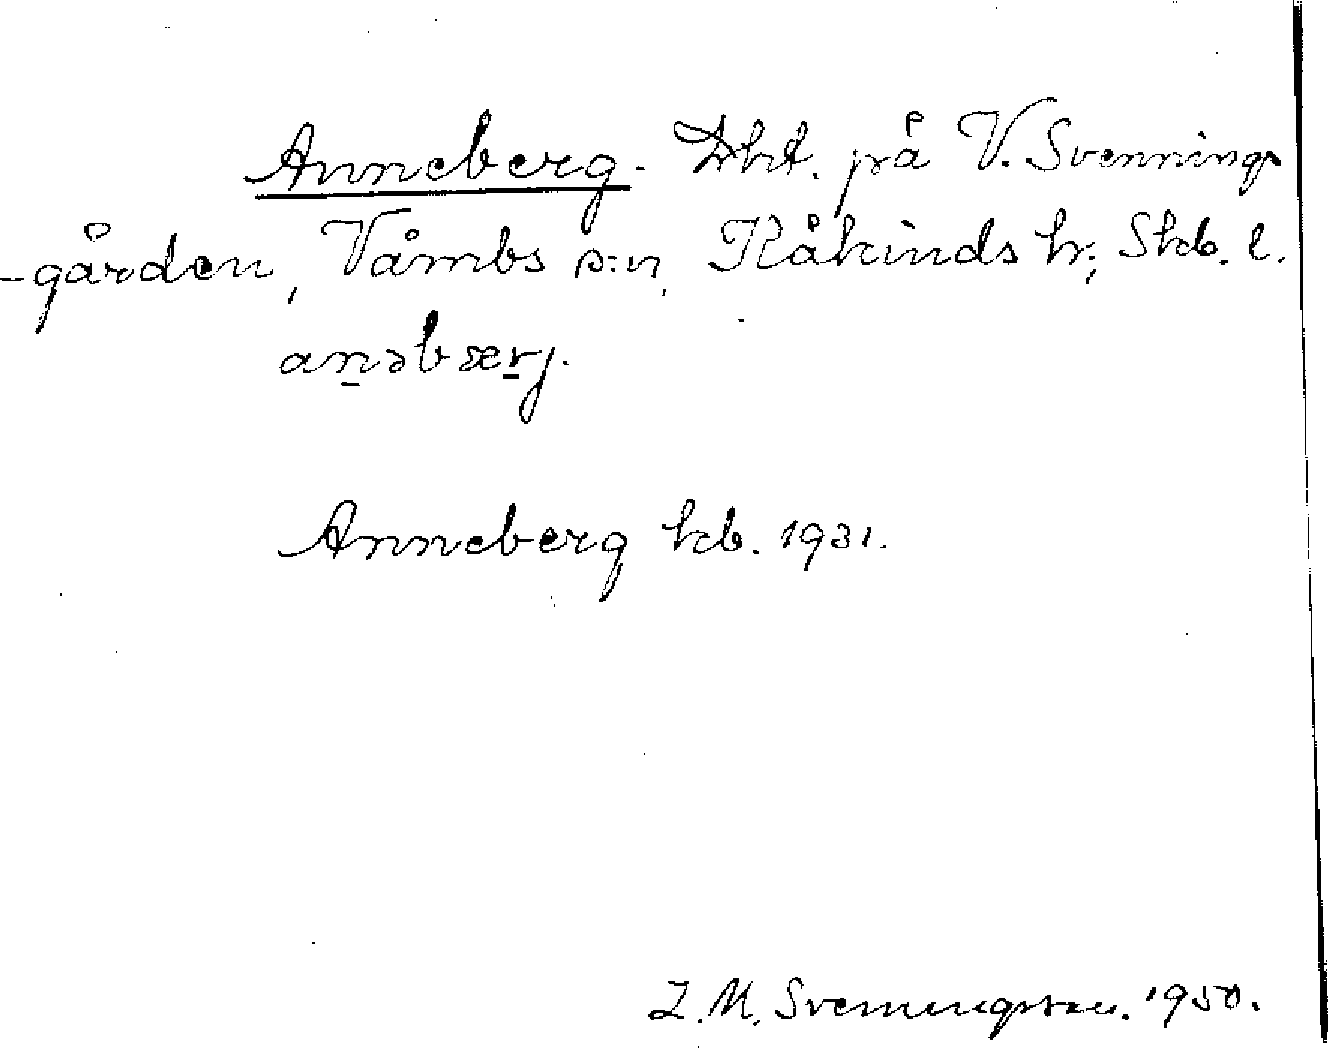 Anneberg. Lht. på V. Svennings
-gården, Våmbs s:n, Kåkinds hr; Skb. l.
anəbærj.
Anneberg kb. 1931.
L. M. Svenningsson. 1950.